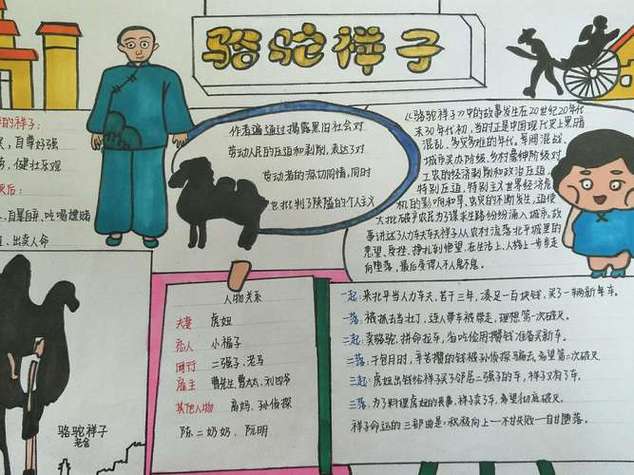 骆驼祥子
的祥子:
自尊好强
健壮乐观
后:
自暴自弃、吃喝嫖赌
出卖人命
作者通过揭露黑旧社会对
劳动人民的压迫和剥削,表达了对
劳动者的深切同情,同时
也批判了陕隘的个人主义
《骆驼祥子》中的故事发生在20世纪20年代
末30年代初,当时正是中国现代史上黑暗
混乱、多灾多难的年代。军阀混战、
工农的经济剥削和政治压迫,
大批破产农民为了谋求生路纷纷涌入城市。故
事讲述了人力车夫祥子从农村流落北平城里的
向堕落,最后变得人不人鬼不鬼。
人物关系
夫妻 虎妞
恋人 小福子
同行 二强子、老马
雇主 曹先生、曹太太、刘四爷
其他人物 高妈、孙侦探
陈二奶奶、阮明
骆驼祥子
老舍
一起:来北平当人力车夫,苦干三年,凑足一百块钱,买了一辆新车。
一落:被抓去当壮丁,连人带车被掳走,理想第一次破灭。
二起:卖骆驼,拼命拉车,省吃俭用攒钱准备买新车。
二落:干包月时,辛苦攒的钱被孙侦探骗去,希望第二次破灭。
三起:虎妞出钱给祥子买了邻居二强子的车,祥子又有了车。
三落:为了料理虎妞的丧事,祥子卖了车,希望彻底破灭。
祥子命运的三部曲是: